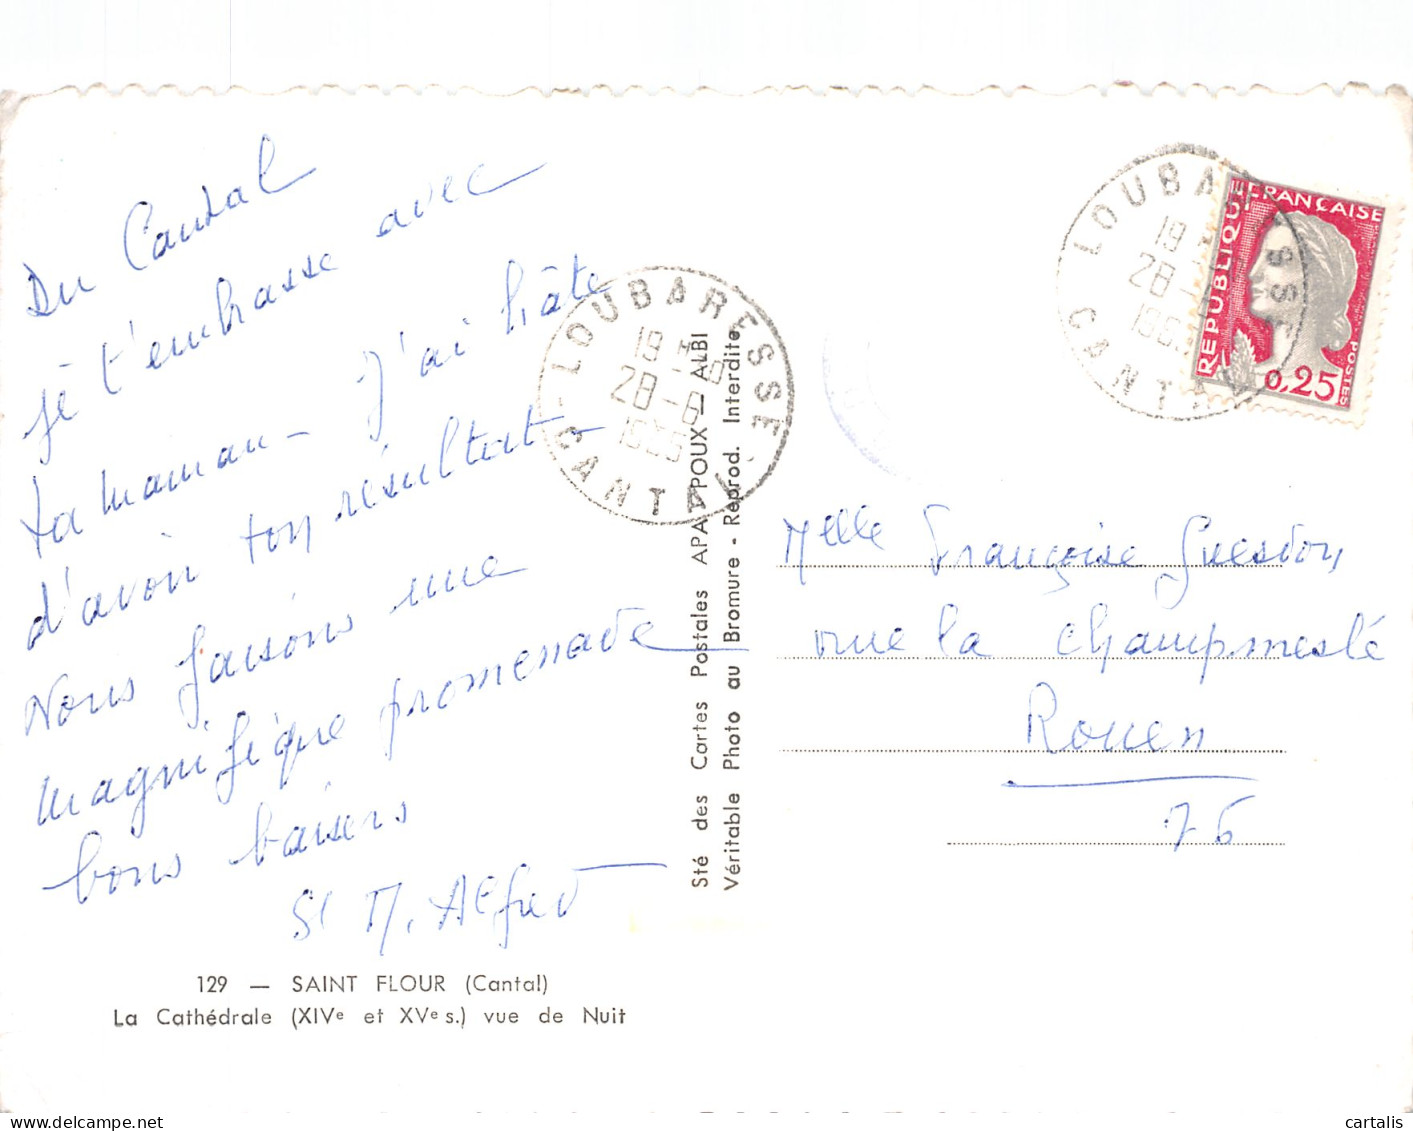 Du Cantal
je t'embrasse avec
ta maman - J'ai hâte
d'avoir ton résultat -
Nous faisons une
magnifique promenade
bons baisers
Sr M. Alfred
129 — SAINT FLOUR (Cantal)
La Cathédrale (XIVe et XVe s.) vue de Nuit
LOUBARESSE
28-6
CANTAL
Sté des Cartes Postales APA POUX — ALBI
Véritable Photo au Bromure - Reprod. Interdite
LOUBARESSE
CANTAL
REPUBLIQUE FRANÇAISE
POSTES
0,25
Melle Françoise Guesdon
rue la Champmeslé
Rouen
76
cartalis
www.delcampe.net